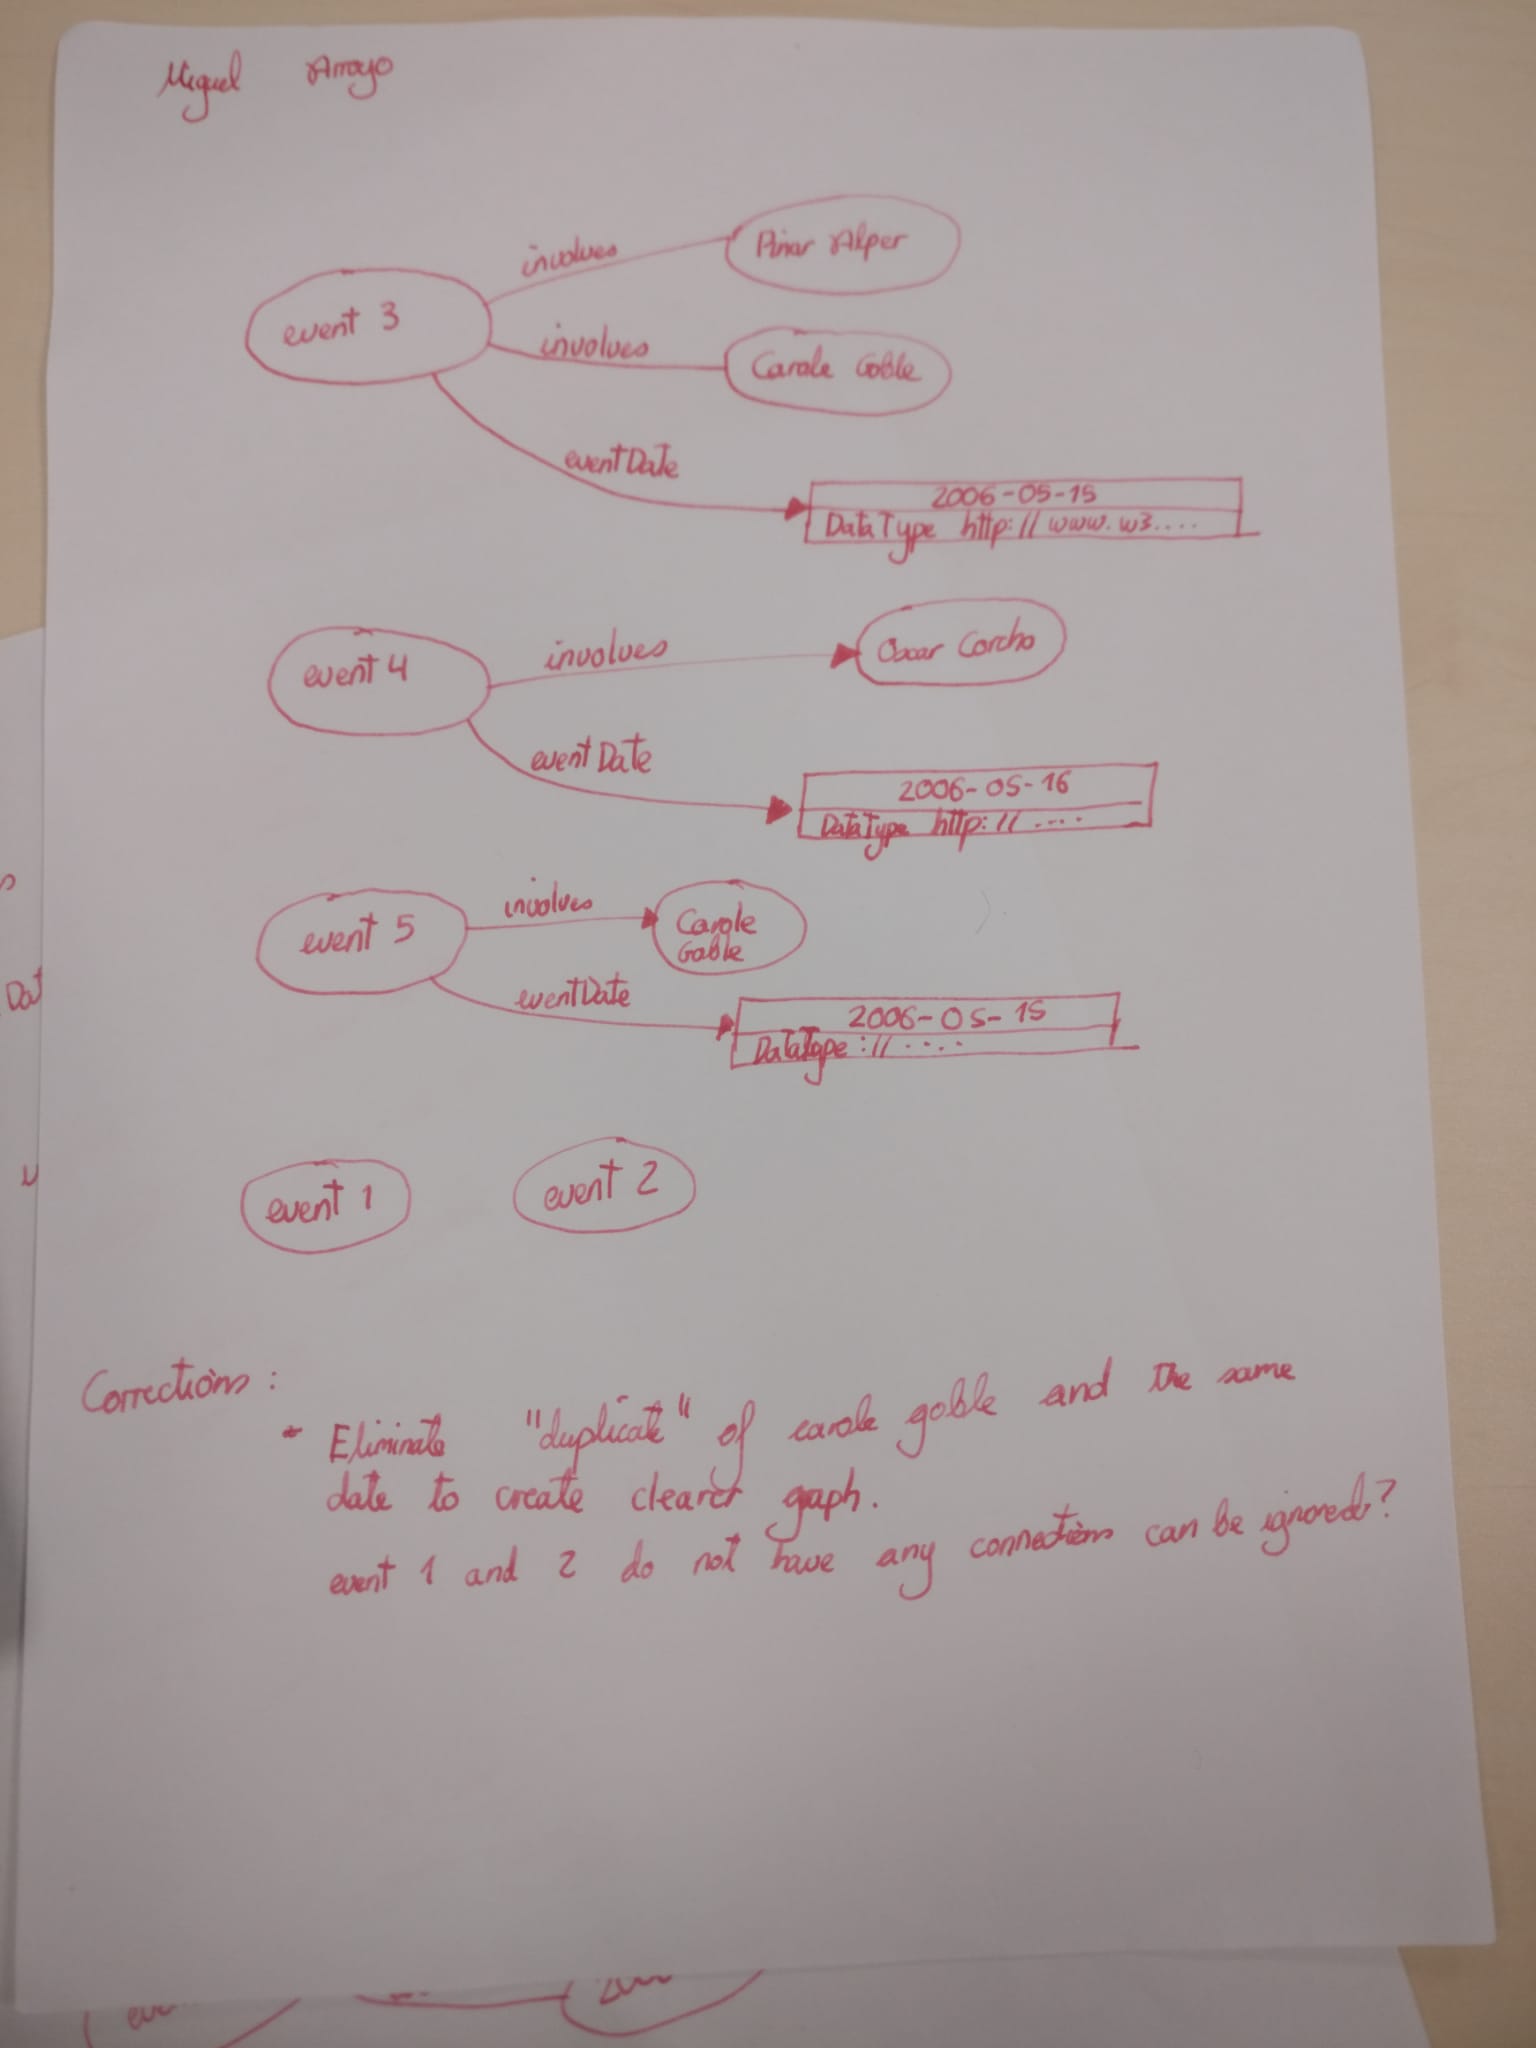 Miguel Arroyo
involves
Pinar Alper
event 3
involves
Carole Goble
eventDate
2006-05-15
DataType http://www.w3....
event 4
involves
Oscar Corcho
eventDate
2006-05-16
DataType http://....
event 5
involves
Carole
Goble
eventDate
2006-05-15
DataType ://....
event 1
event 2
Corrections:
- Eliminate "duplicate" of carole goble and the same
date to create clearer gaph.
event 1 and 2 do not have any connections can be ignored?
Dat